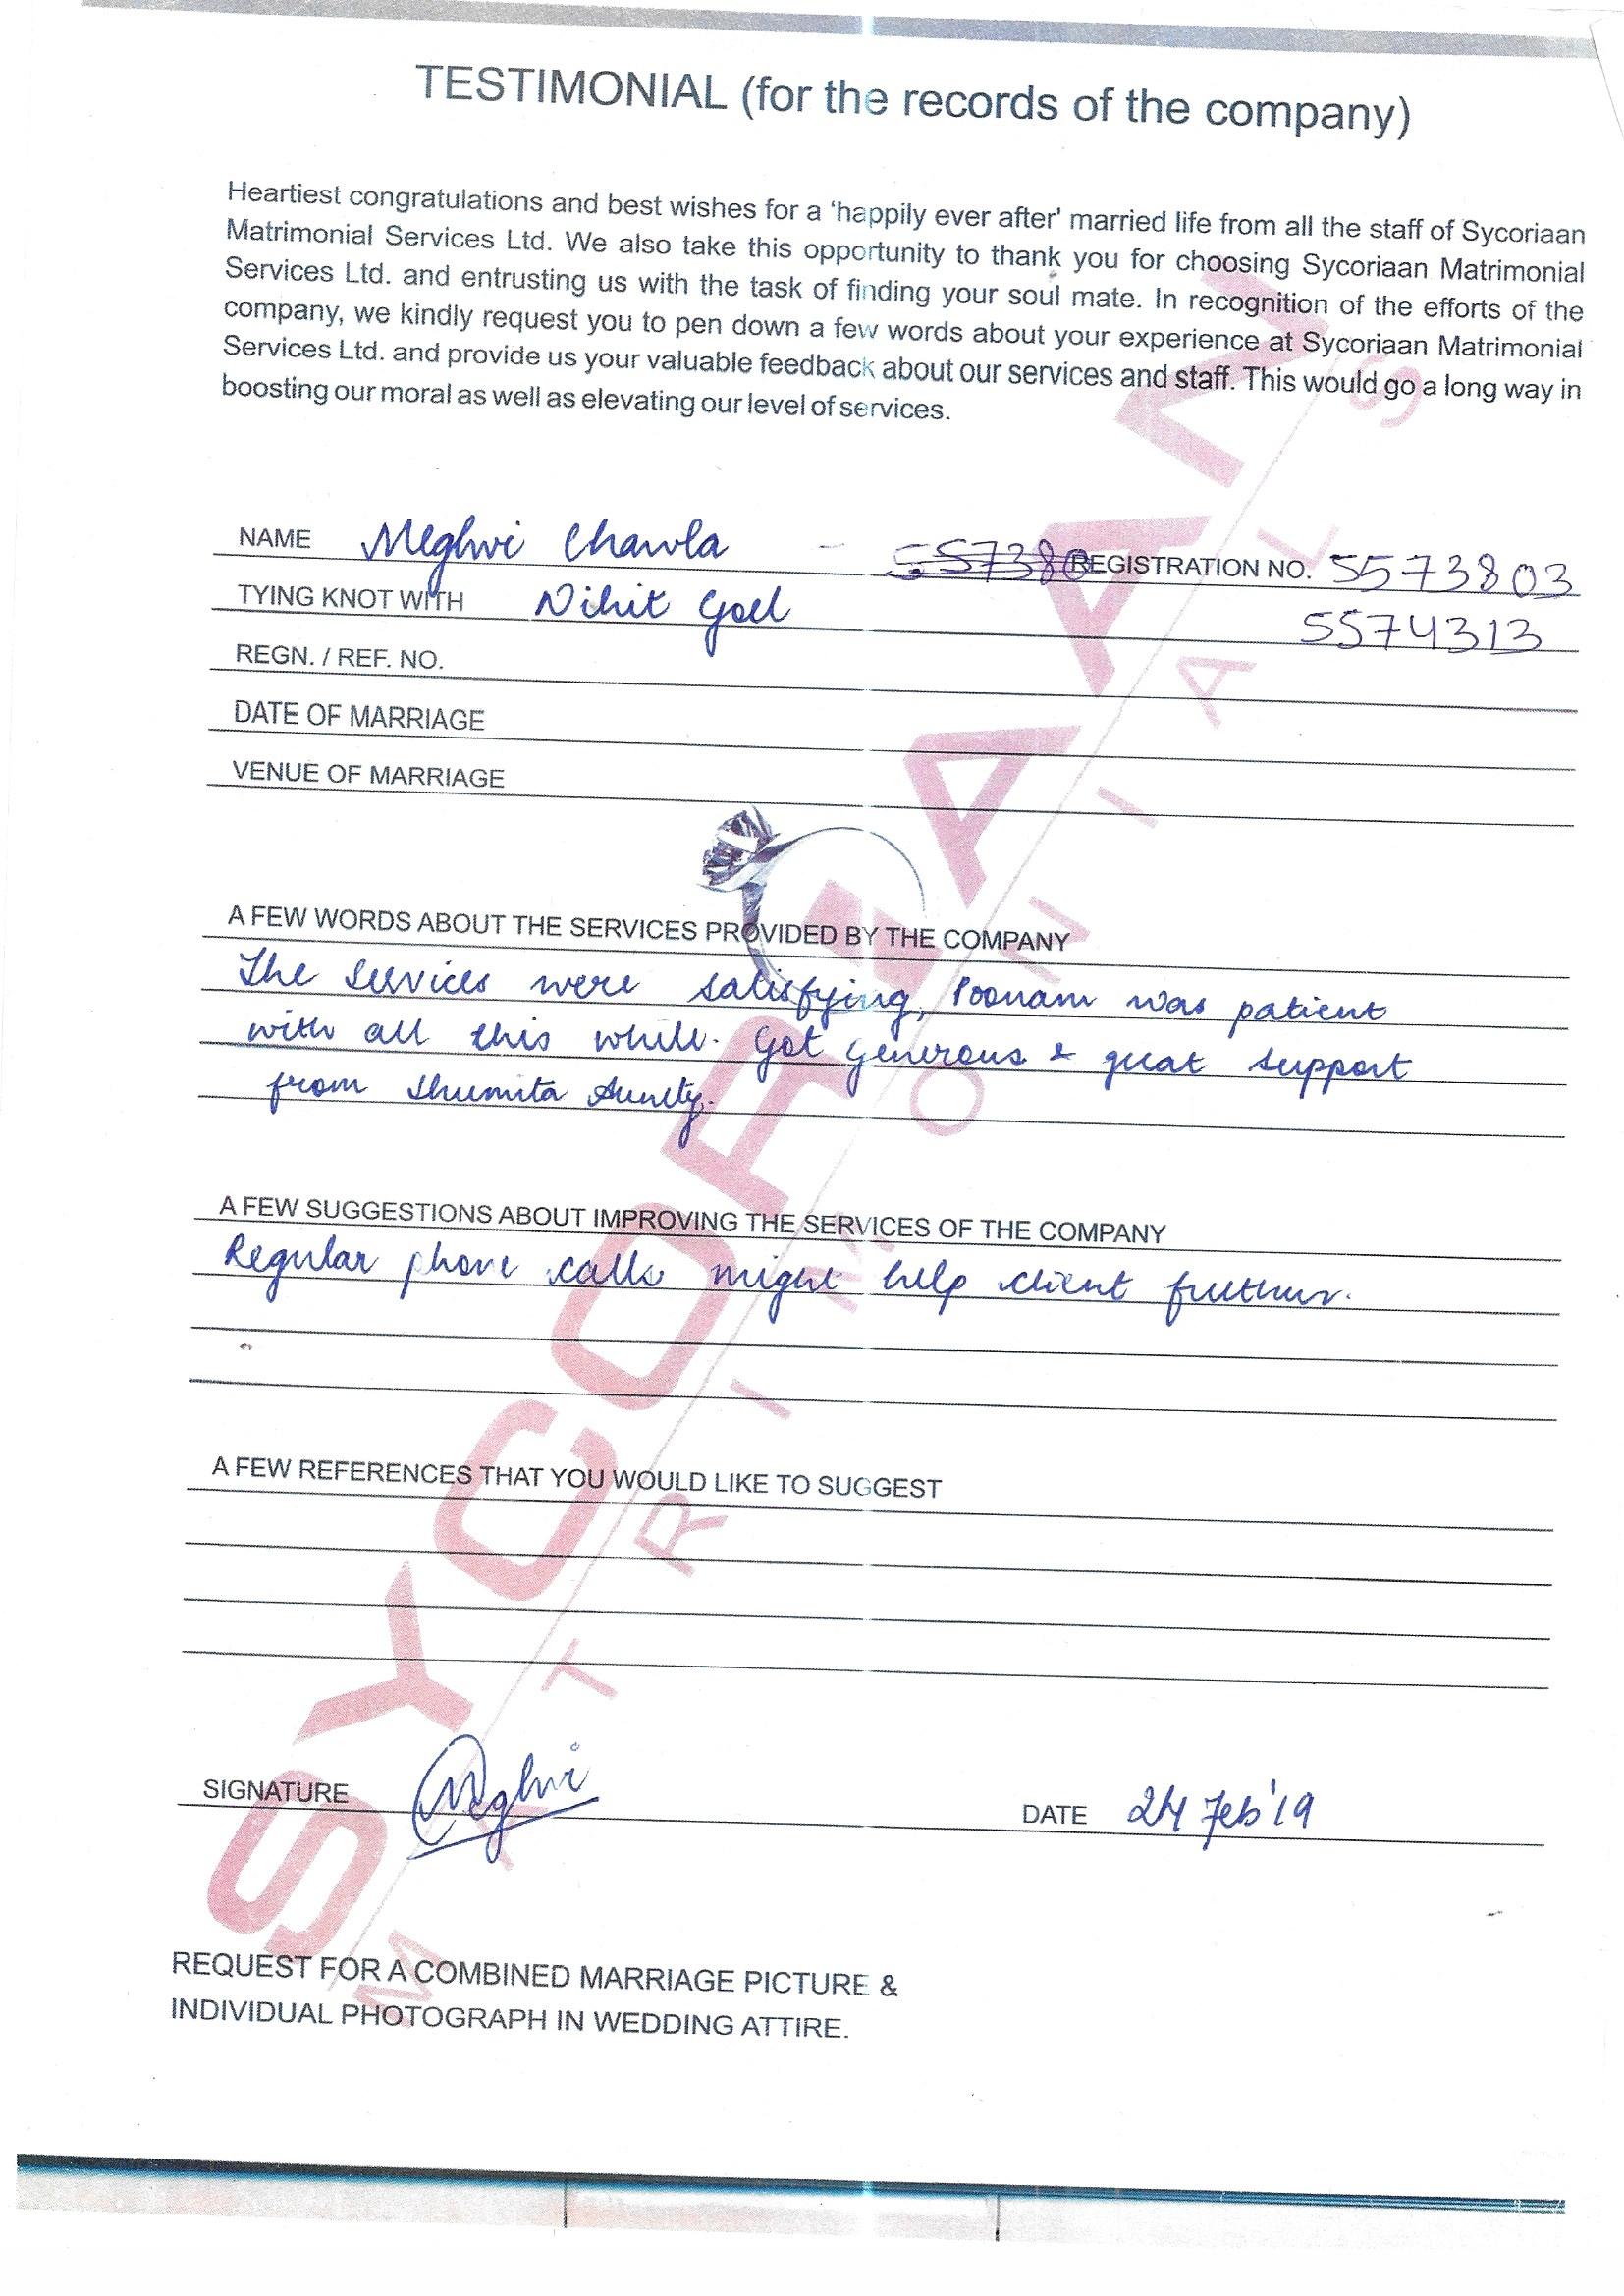 TESTIMONIAL (for the records of the company)
Heartiest congratulations and best wishes for a 'happily ever after' married life from all the staff of Sycoriaan
Matrimonial Services Ltd. We also take this opportunity to thank you for choosing Sycoriaan Matrimonial
Services Ltd. and entrusting us with the task of finding your soul mate. In recognition of the efforts of the
company, we kindly request you to pen down a few words about your experience at Sycoriaan Matrimonial
Services Ltd. and provide us your valuable feedback about our services and staff. This would go a long way in
boosting our moral as well as elevating our level of services.
NAME Meghvi Chawla - 557380 REGISTRATION NO. 5573803
TYING KNOT WITH Nihit Goel 5574313
REGN. / REF. NO.
DATE OF MARRIAGE
VENUE OF MARRIAGE
A FEW WORDS ABOUT THE SERVICES PROVIDED BY THE COMPANY
The services were satisfying, Poonam was patient
with all this while. Got generous & great support
from Shumita Aunty.
A FEW SUGGESTIONS ABOUT IMPROVING THE SERVICES OF THE COMPANY
Regular phone calls might help client further.
A FEW REFERENCES THAT YOU WOULD LIKE TO SUGGEST
SIGNATURE Meghvi DATE 24 Feb'19
REQUEST FOR A COMBINED MARRIAGE PICTURE &
INDIVIDUAL PHOTOGRAPH IN WEDDING ATTIRE.
SYCORIAAN
MATRIMONIALS